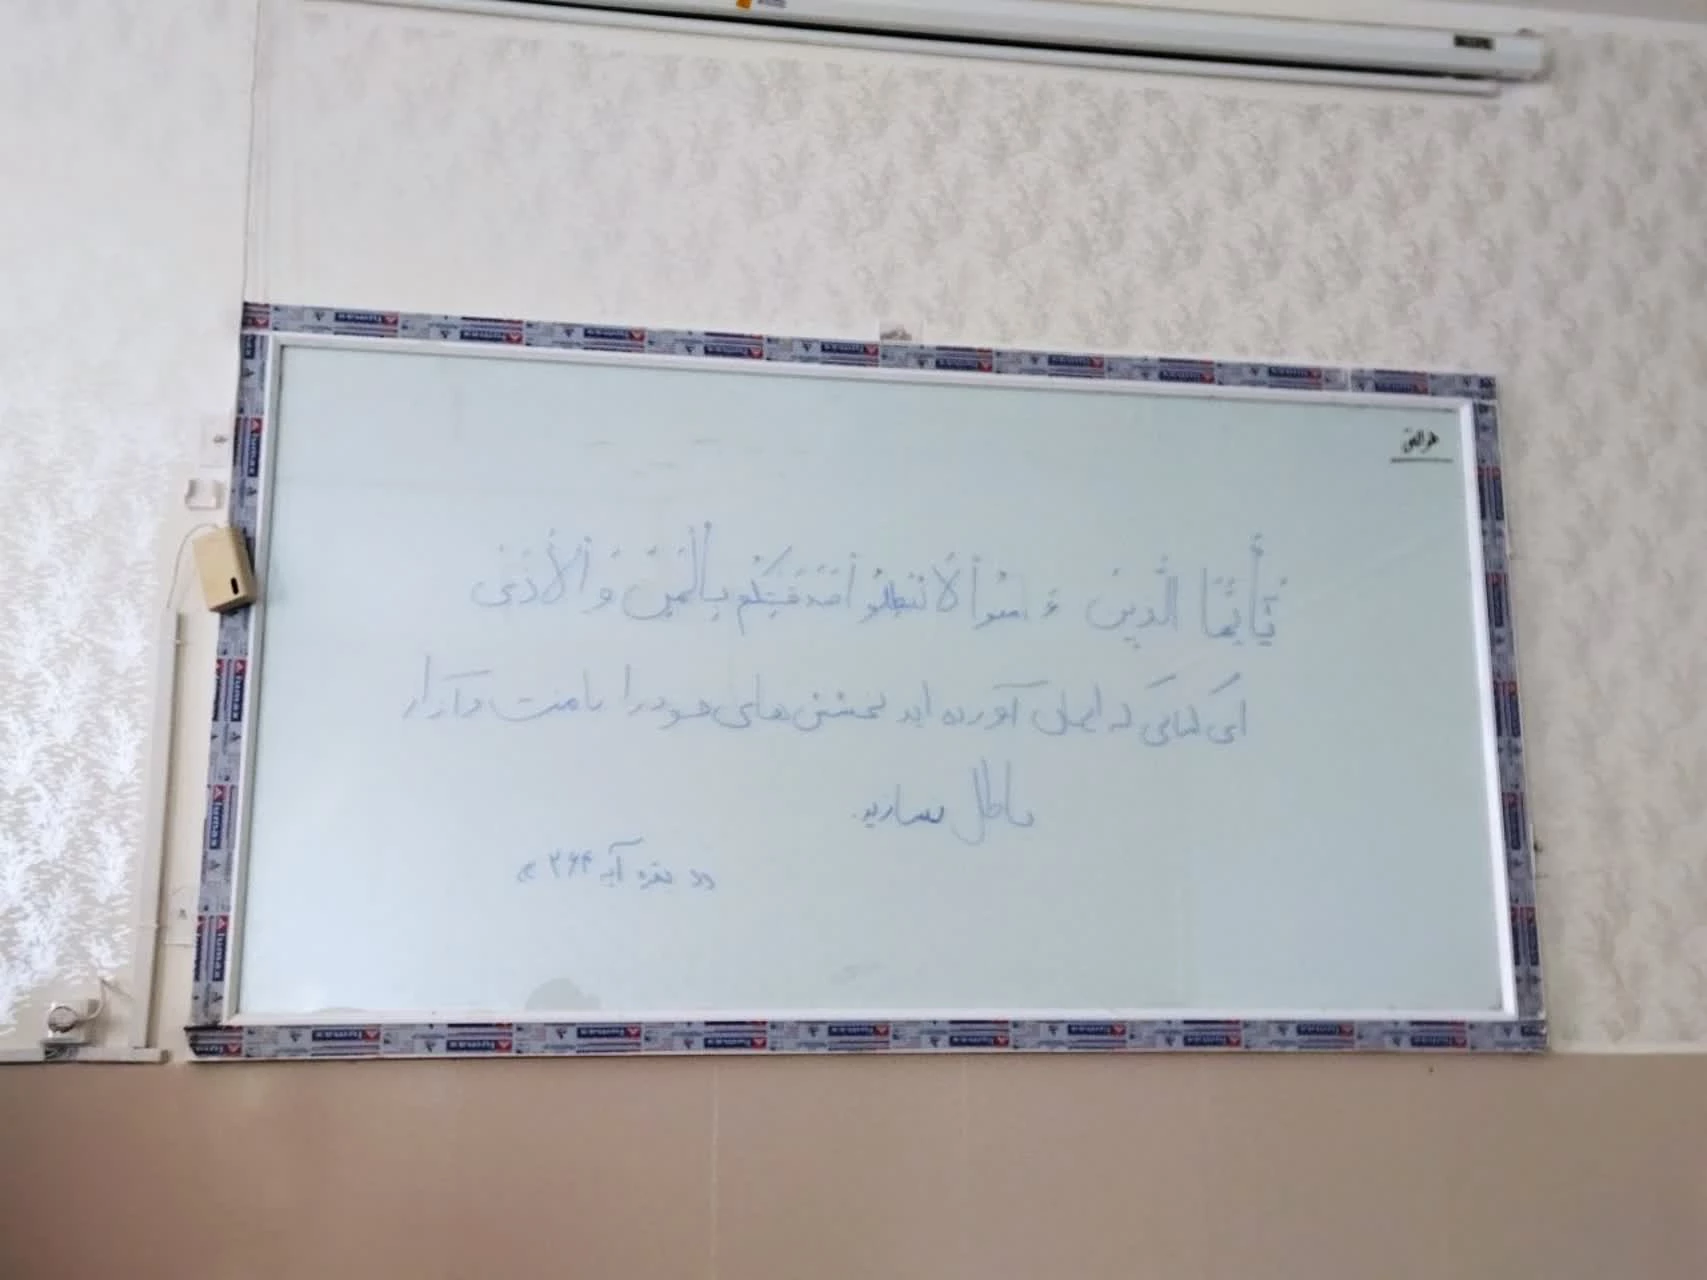 هوالحق
يَٰٓأَيُّهَا الَّذِينَ ءَامَنُوا لَا تُبْطِلُوا صَدَقَٰتِكُم بِالْمَنِّ وَالْأَذَىٰ
ای کسانی که ایمان آورده اید بخشش های خود را با منت و آزار
باطل نسازید.
«بقره آیه ۲۶۴»
Alumax